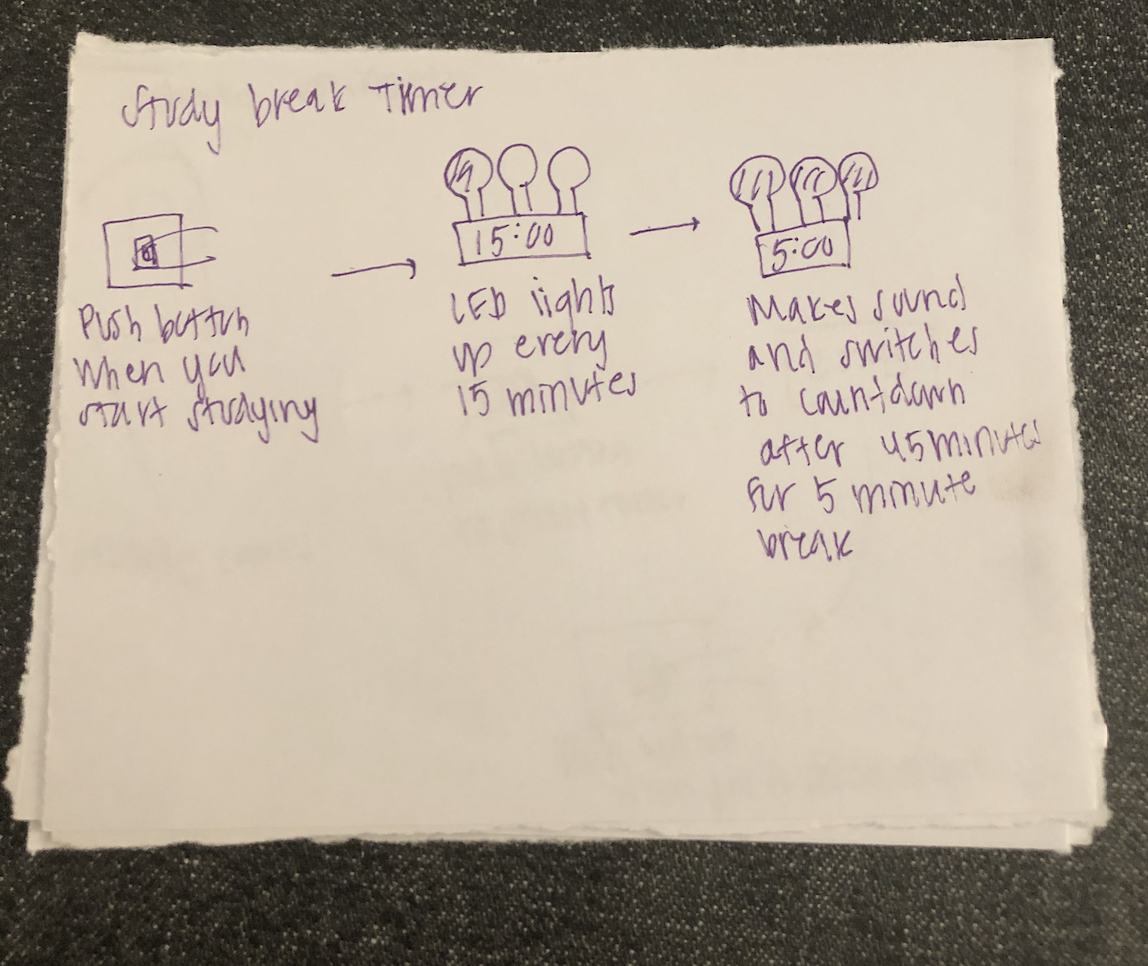 Study break Timer
Push button
when you
start studying
15:00
LED lights
up every
15 minutes
5:00
Makes sound
and switches
to countdown
after 45 minutes
for 5 minute
break